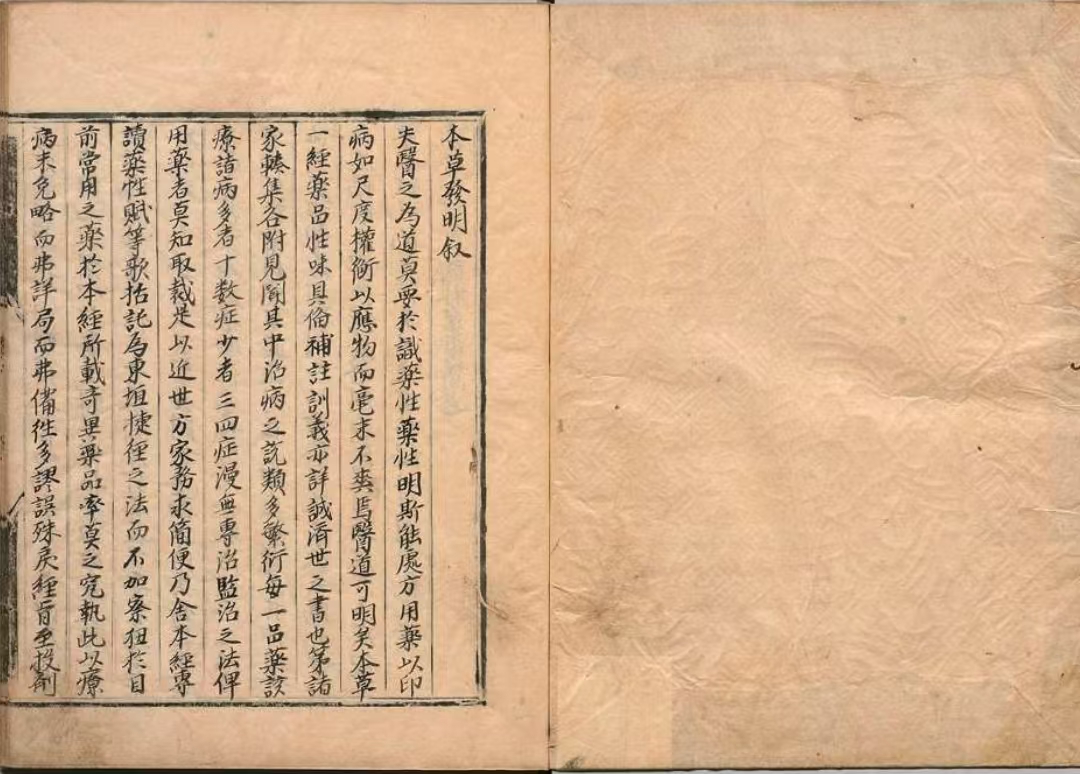 本草發明叙
夫醫之為道莫要於識藥性藥性明斯能處方用藥以印
病如尺度權衡以應物而毫末不爽焉醫道可明矣本草
一經藥品性味具俻補註訓義亦詳誠濟世之書也第諸
家輳集各附見聞其中治病之説類多繁衍每一品藥該
療諸病多者十数症少者三四症漫無專治監治之法俾
用藥者莫知取裁是以近世方家務求簡便乃舍本經專
讀藥性賦等歌括託為東垣捷徑之法而不加察狃於目
前常用之藥於本經所載奇異藥品率莫之究執此以療
病未免略而弗詳局而弗備徃多謬誤殊戾經旨至投劑